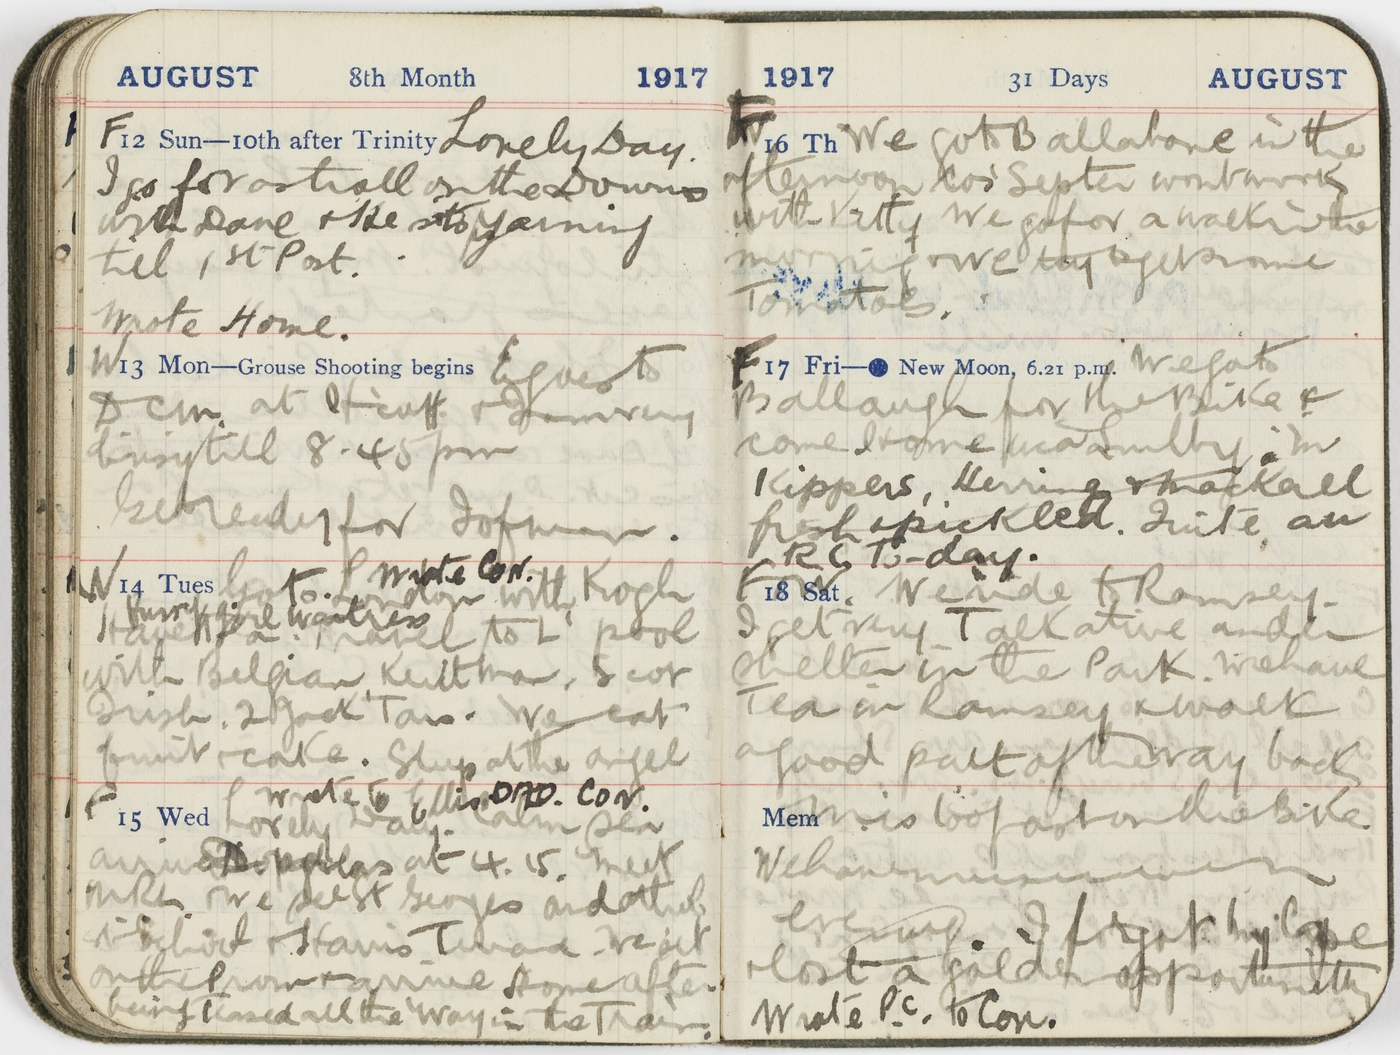 AUGUST 8th Month 1917
F 12 Sun—10th after Trinity Lonely Day.
I go for a stroll on the Downs
with Dave & He sto yarning
till 1st Post.
Wrote Home.
W 13 Mon—Grouse Shooting begins E goes to
DCM. at H'cuff &
busy till 8.45 pm
Get ready for I of man.
W 14 Tues Go to London with Keogh
Wrote Con.
Hurry girl waitress
Have a Travel to L'pool
with Belgian, 5 cor
Irish, 2 Jack Tars. We eat
fruit & cake. Sleep at the angel
F 15 Wed Lovely Day. Calm Sea
Wrote to Ellis DAD. Con.
arrive Douglas at 4.15. Meet
& we see St Georges and other
school & Harris Terrace. We sit
on the Prom & arrive Home after
being teased all the Way in the Train.
1917 31 Days AUGUST
F 16 Th We go to Ballabane in the
afternoon cos' Septer wont work
with Kitty We go for a walk in the
morning & We try to get some
Tomatoes.
F 17 Fri— New Moon, 6.21 p.m. We go to
Ballaugh for the Bike &
come Home via Sulby. in
Kippers, Herring & Mackerell
fresh & pickled. Quite an
RC To-day.
F 18 Sat. W. We ride to Ramsey.
I get very Talkative under
shelter in the Park. We have
Tea in Ramsey & walk
a good part of the way back
Mem M is too fast on the Bike.
We have
evening. I forgot my Cape
& lost a golden opportunity
Wrote P.C. to Con.